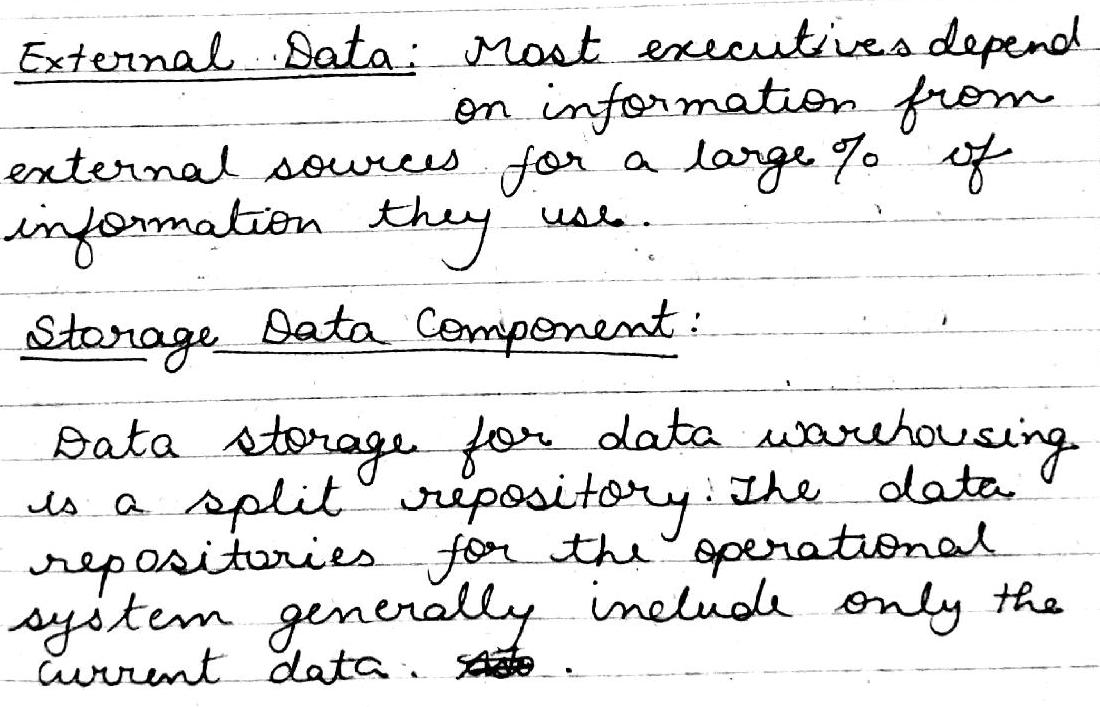 External Data: Most executives depend
on information from
external sources for a large % of
information they use.
Storage Data Component:
Data storage for data warehousing
is a split repository. The data
repositories for the operational
system generally include only the
current data. .